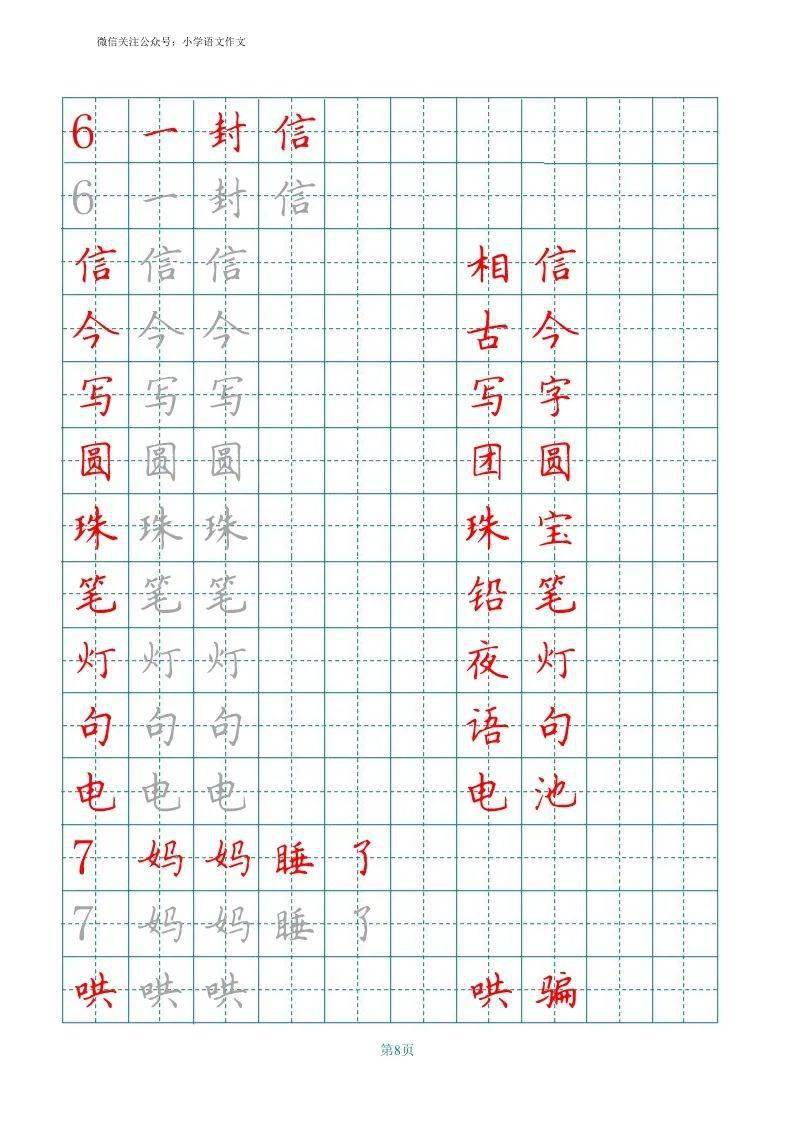 微信关注公众号：小学语文作文
6 一 封 信
6 一 封 信
信 信 信 相 信
今 今 今 古 今
写 写 写 写 字
圆 圆 圆 团 圆
珠 珠 珠 珠 宝
笔 笔 笔 铅 笔
灯 灯 灯 夜 灯
句 句 句 语 句
电 电 电 电 池
7 妈 妈 睡 了
7 妈 妈 睡 了
哄 哄 哄 哄 骗
第8页